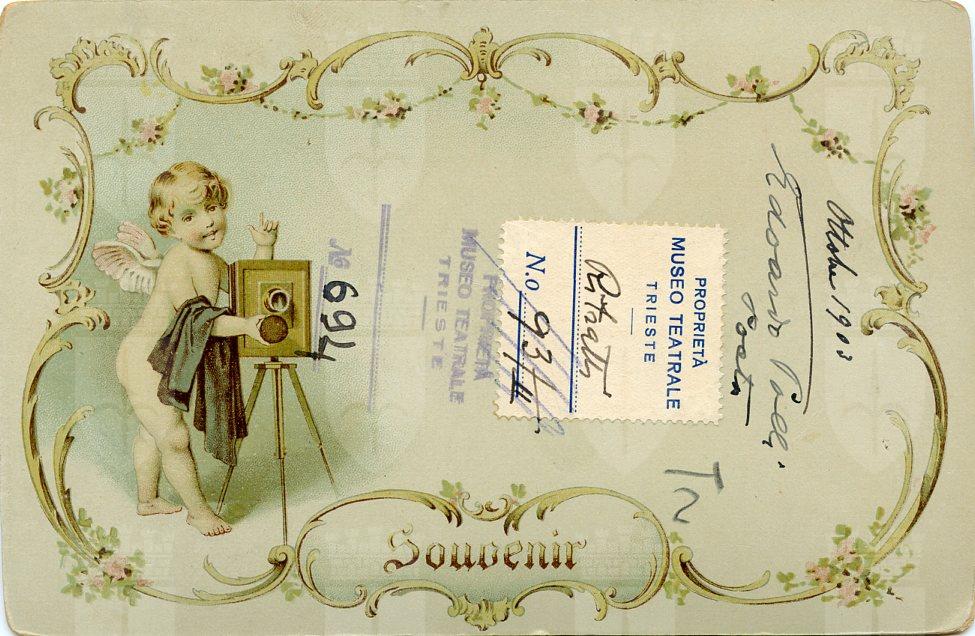 Ottobre 1903
Edoardo Polli
Poeta
PROPRIETÀ
MUSEO TEATRALE
TRIESTE
Ritratti
N.o 9314
PROPRIETÀ
MUSEO TEATRALE
TRIESTE
No 694
Souvenir